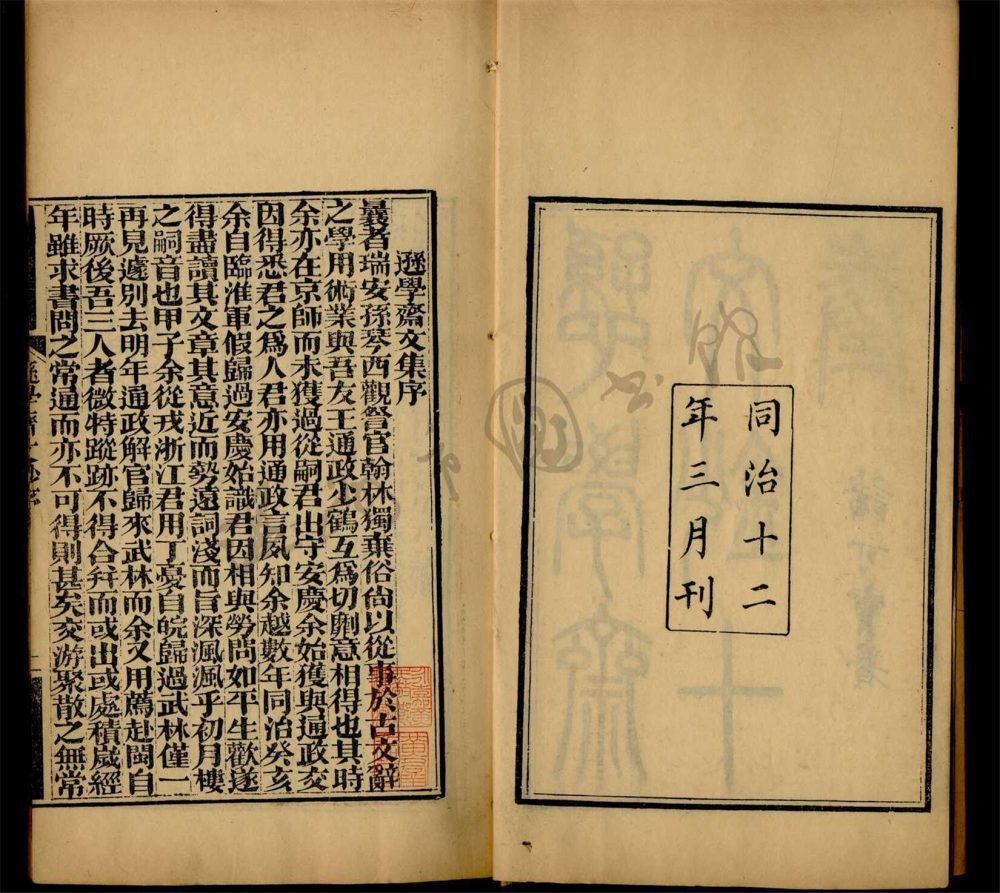 同治十二
年三月刊
遜學齋文集序
曩者瑞安孫琴西觀詧官翰林獨棄俗尙以從事於古文辭
之學用術業與吾友王通政少鶴互爲切劘意相得也其時
余亦在京師而未獲過從嗣君出守安慶余始獲與通政交
因得悉君之爲人君亦用通政言夙知余越數年同治癸亥
余自臨淮軍假歸過安慶始識君因相與勞問如平生歡遂
得盡讀其文章其意近而勢遠詞淺而旨深渢渢乎初月樓
之嗣音也甲子余從戎浙江君用丁憂自皖歸過武林僅一
再見遽別去明年通政解官歸來武林而余又用薦赴閩自
時厥後吾三人者微特蹤跡不得合幷而或出或處積歲經
年雖求書問之常通而亦不可得則甚矣交游聚散之無常